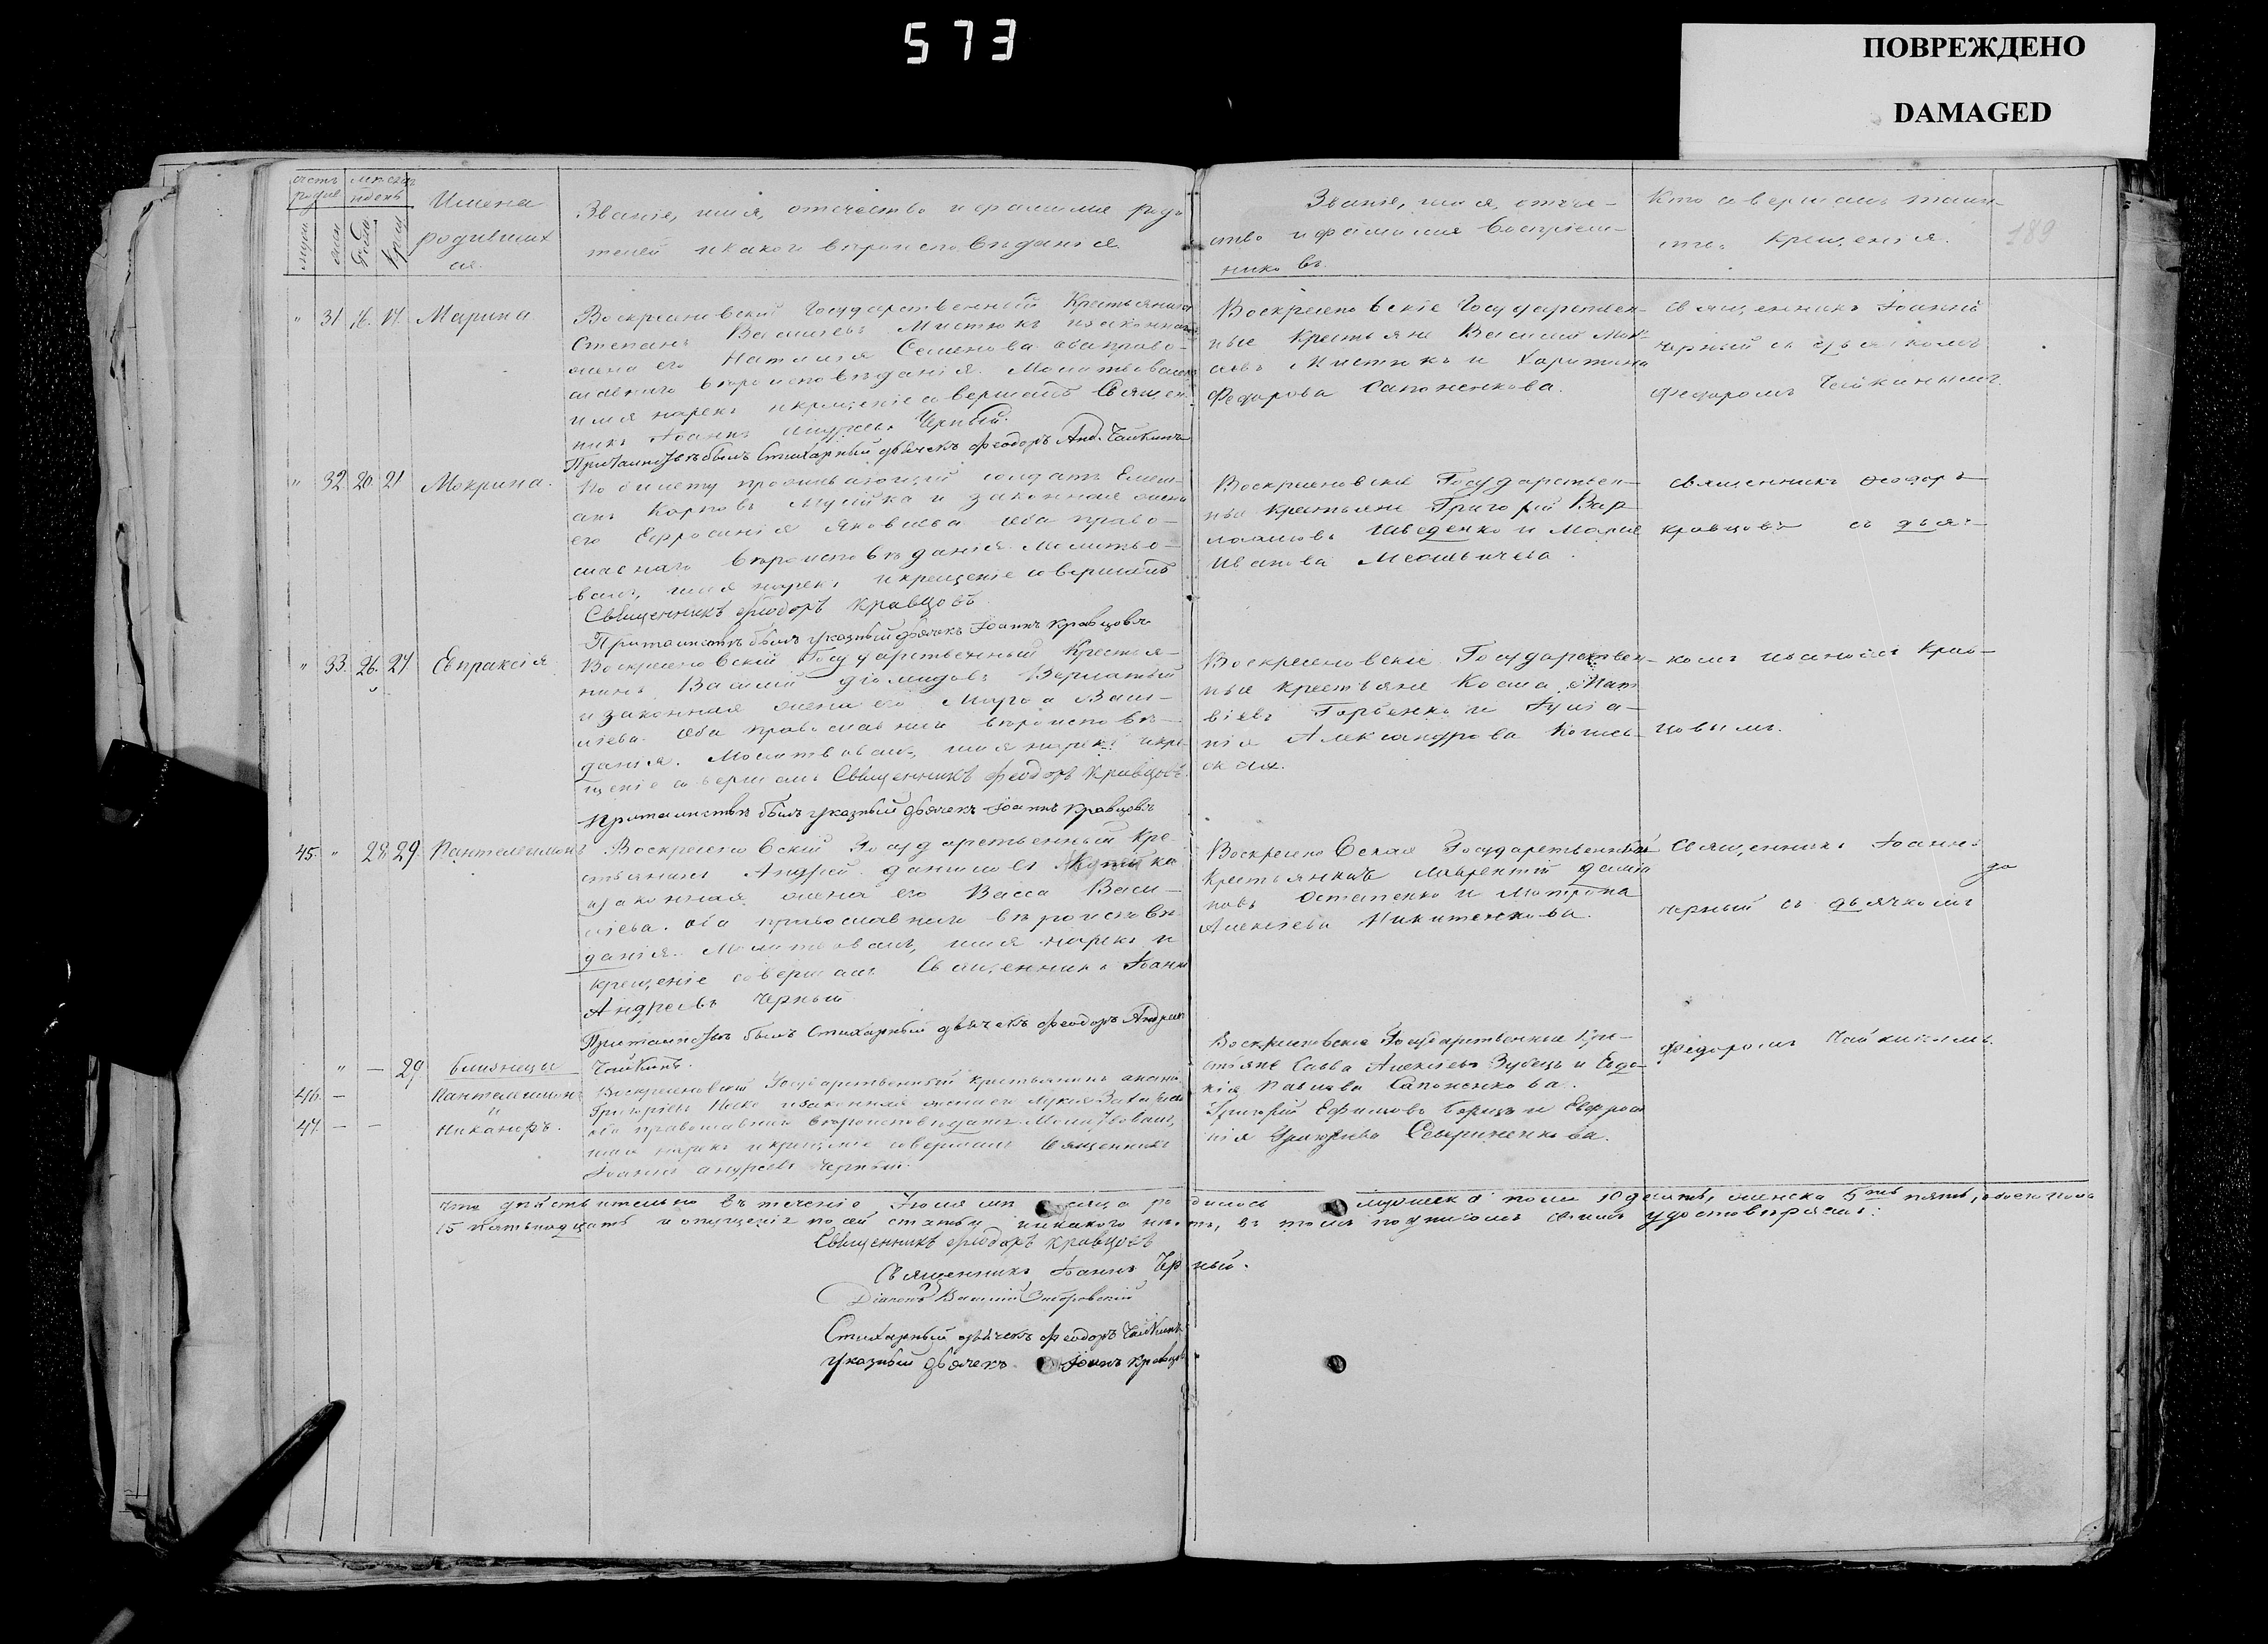 573
ПОВРЕЖДЕНО
DAMAGED
189
Имена
родивших
ся.
Званіе, имя, отечество и фамилия роди
телей и какого вѣроисповѣданія
Званіе, имя, отече-
ство и фамилия воспріем-
никовъ.
Кто совершалъ таин-
ство крещенія.
" 31 16. 17. Марина.
Воскресеновскій Государственный Крестьянинъ
Степанъ Васильевъ Мистюкъ и законная
жена его Наталія Семенова оба право-
славнаго вѣроисповѣданія. Молитвовалъ
имя нарекъ и крещеніе совершалъ Священ
никъ Іоаннъ Андреевъ Черный.
При таинствѣ былъ Стихарный дьячекъ Феодоръ Анд. Чайкинъ
Воскресеновскіе Государствен-
ные Крестьяне Василій
Мистюкъ и Харитина
Федорова Сапоненкова.
Священникъ Іоаннъ
Черный съ дьячкомъ
Федоромъ Чайкинымъ.
" 32. 20. 21 Мокрина.
По билету проживающій солдатъ Емель-
анъ Карповъ и законная жена
его Ефросинія Яковлева оба право-
славнаго вѣроисповѣданія. Молитво-
валъ, имя нарекъ и крещеніе совершалъ
Священникъ Феодоръ Кравцовъ
При таинствѣ былъ указный дьячекъ Іоаннъ Кравцовъ
Воскресеновскіе Государствен-
ные крестьяне Григорій Вар-
ламовъ Шведенко и Марія
Иванова
Священникъ Феодоръ
Кравцовъ съ дьяч-
" 33. 26. 27 Евпраксія
Воскресеновскій Государственный Крестья-
нинъ Василій Діомидовъ
и законная жена его Марфа Васи-
ліева. Оба православнаго вѣроисповѣ-
данія. Молитвовалъ, имя нарекъ и кре-
щеніе совершалъ Священникъ Феодоръ Кравцовъ.
При таинствѣ былъ указный дьячекъ Іоаннъ Кравцовъ
Воскресеновскіе Государствен-
ные крестьяне Косма Мат
віевъ Горбенко и Іулiа-
нія Александрова
ская.
комъ Иваномъ Крав-
цовымъ.
45. " 28. 29. Пантелеимонъ
Воскресеновскій Государственный Кре
стьянинъ Андрей Даниловъ
и законная жена его Васса Васи-
ліева. оба православнаго вѣроисповѣ
данія. Молитвовалъ, имя нарекъ и
крещеніе совершалъ Священникъ Іоаннъ
Андреевъ Черный
При таинствѣ былъ Стихарный дьячекъ Феодоръ Андреевъ
Чайкинъ.
Крестьянинъ Лаврентій Дамiа
новъ Остапенко и Матрона
Алексіева Никитенкова.
Священникъ Іоаннъ
Черный съ дьячкомъ
" — 29 близнецы
46. — Пантелеимонъ
и
47. — — Никаноръ.
Воскресеновскій Государственный крестьянинъ
оба православнаго вѣроисповѣданія Молитвовалъ,
имя нарекъ и крещеніе совершалъ Священникъ
Іоаннъ Андреевъ Черный.
Воскресеновскіе Государственные Кре-
стьяне Савва Алексіевъ Зубецъ и Евдо-
кія Павлова Сапоненкова.
Григорій Ефимовъ и Евфроси
нія Григорьева Севериненкова.
Федоромъ Чайкинымъ.
Что дѣйствительно въ теченіе Іюля мѣсяца родилось мужеска пола 10 десять, женска 5ть пять, обоего пола
15 пятьнадцать и опущенія по сей статьи никакого нѣтъ, въ томъ подписомъ своимъ удостовѣряемъ:
Священникъ Феодоръ Кравцовъ
Священникъ Іоаннъ Черный.
Діаконъ Василій
Стихарный дьячекъ Феодоръ Чайкинъ
указный дьячекъ Іоаннъ Кравцовъ